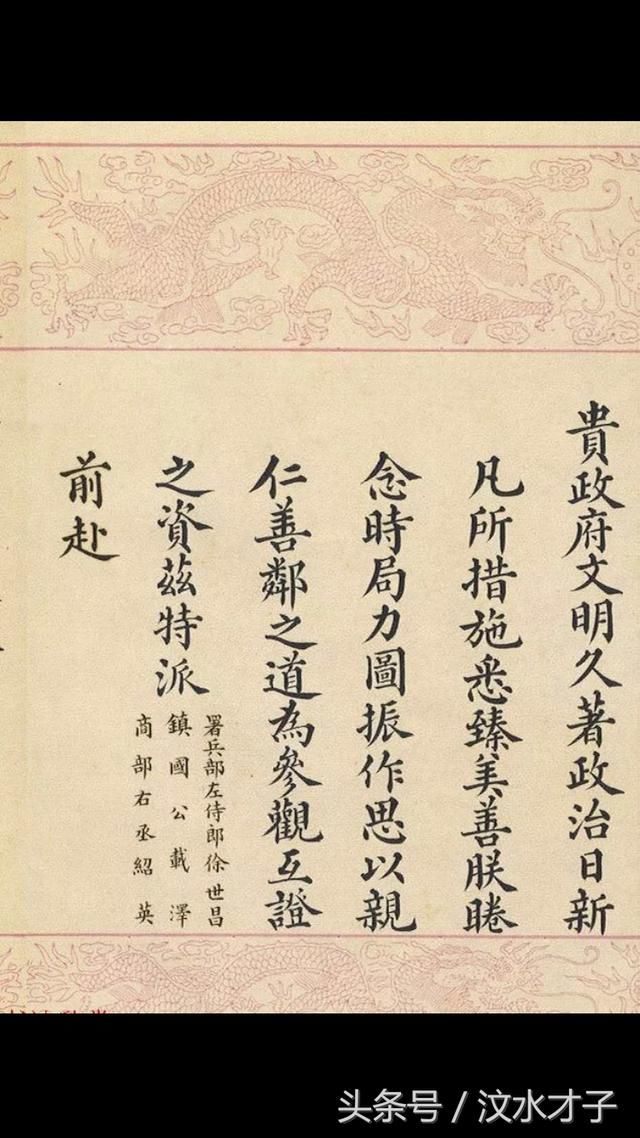 貴政府文明久著政治日新
凡所措施悉臻美善朕睠
念時局力圖振作思以親
仁善鄰之道為參觀互證
之資茲特派
署兵部左侍郎徐世昌
鎮國公載澤
商部右丞紹英
前赴
头条号 / 汶水才子